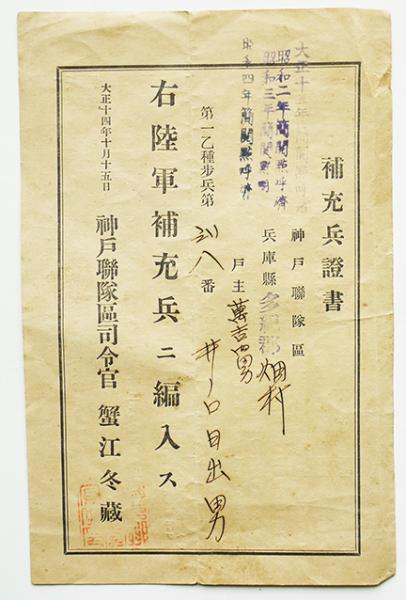 補充兵證書
神戸聯隊區
兵庫縣多紀郡畑村
戸主萬吉四男
井ノ口日出男
第一乙種步兵第
八番
右陸軍補充兵ニ編入ス
大正十四年十月十五日
神戸聯隊區司令官 蟹江冬藏
大正十 年
昭和二年簡閲點呼濟
昭和三年簡閲點呼
昭和四年簡閲點呼濟